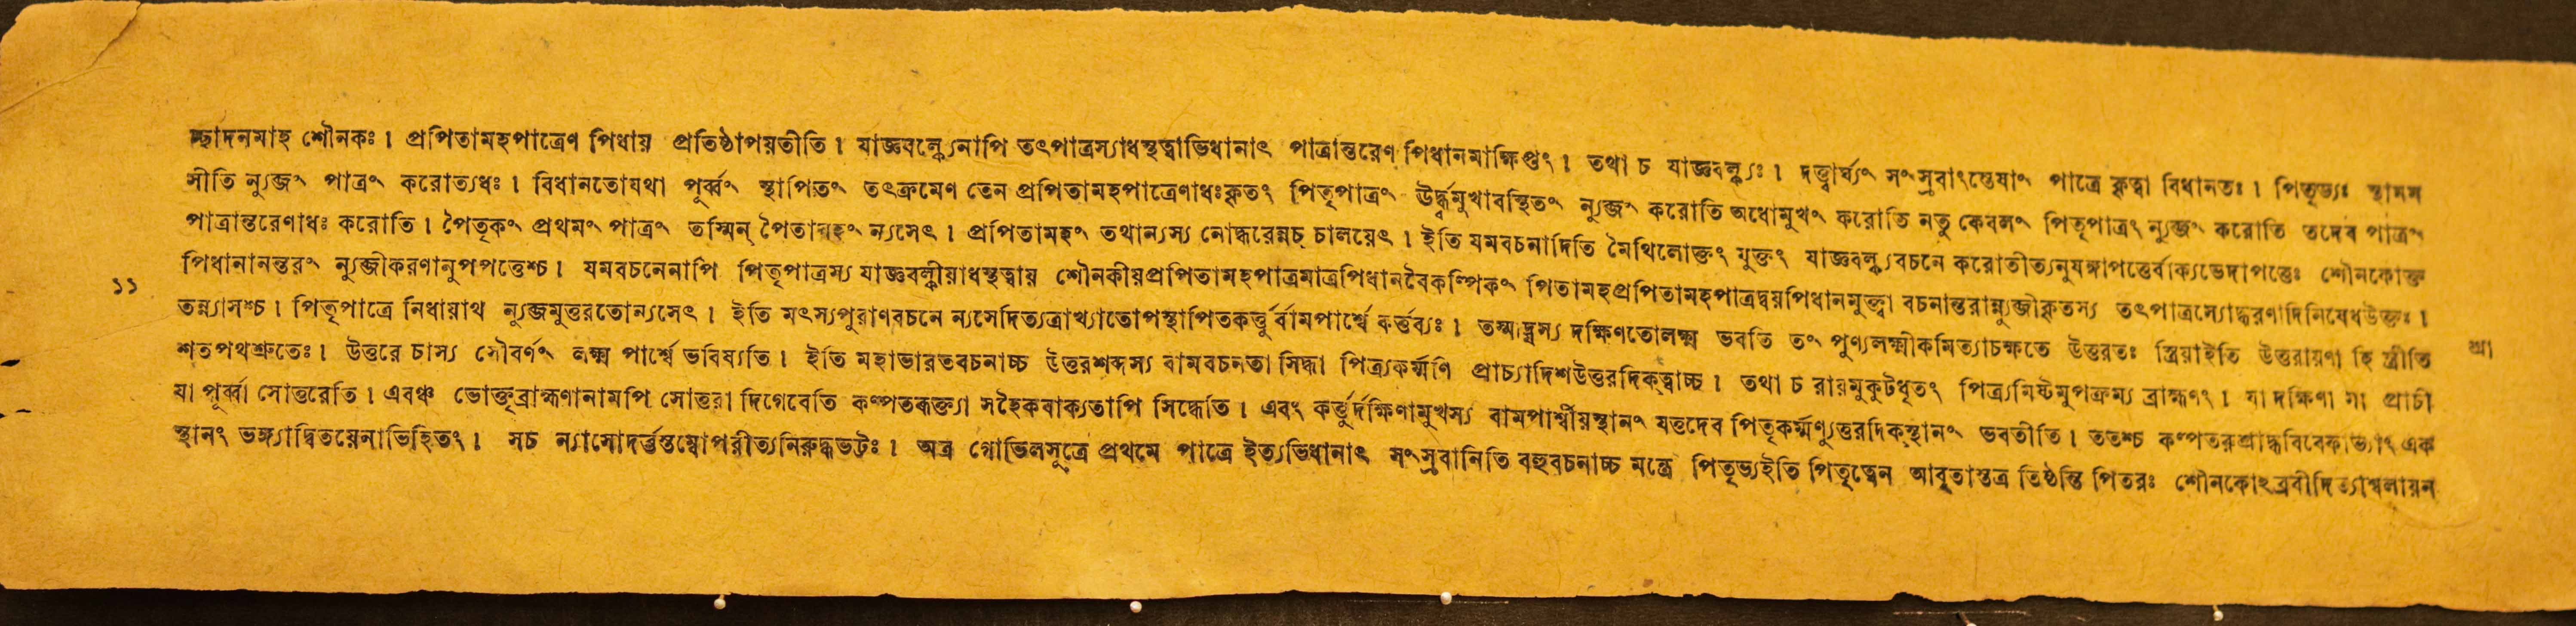 চ্ছাদনমাহ শৌনকঃ। প্রপিতামহপাত্রেণ পিধায় প্রতিষ্ঠাপয়তীতি। যাজ্ঞবল্ক্যেনাপি তৎপাত্রস্যাধস্থত্বাভিধানাৎ পাত্রান্তরেণ পিধানমাক্ষিপ্তং। তথা চ যাজ্ঞবল্ক্যঃ। দত্ত্বার্ঘ্যং সংস্রবাংস্তেষাং পাত্রে কৃত্বা বিধানতঃ। পিতৃভ্যঃ স্থানম
সীতি ন্যুব্জং পাত্রং করোত্যধঃ। বিধানতোযথা পূর্ব্বং স্থাপিতং তৎক্রমেণ তেন প্রপিতামহপাত্রেণাধঃকৃতং পিতৃপাত্রং ঊর্দ্ধ্বমুখাবস্থিতং ন্যুব্জং করোতি অধোমুখং করোতি নতু কেবলং পিতৃপাত্রং ন্যুব্জং করোতি তদেব পাত্রং
পাত্রান্তরেণাধঃ করোতি। পৈতৃকং প্রথমং পাত্রং তস্মিন্ পৈতামহং ন্যসেৎ। প্রপিতামহং তথান্যস্য নোদ্ধরেন্নচ চালয়েৎ। ইতি যমবচনাদিতি মৈথিলোক্তং যুক্তং যাজ্ঞবল্ক্যবচনে করোতীত্যনুষঙ্গাপত্তের্বাক্যভেদাপত্তেঃ শৌনকোক্ত
১১
পিধানানন্তরং ন্যুব্জীকরণানুপপত্তেশ্চ। যমবচনেনাপি পিতৃপাত্রস্য যাজ্ঞবল্কীয়াধস্থত্বায় শৌনকীয়প্রপিতামহপাত্রমাত্রপিধানবৈকল্পিকং পিতামহপ্রপিতামহপাত্রদ্বয়পিধানমুক্ত্বা বচনান্তরান্ন্যুব্জীকৃতস্য তৎপাত্রস্যোদ্ধরণাদিনিষেধউক্তঃ।
তন্ন্যাসশ্চ। পিতৃপাত্রে নিধায়াথ ন্যুব্জমুত্তরতোন্যসেৎ। ইতি মৎস্যপুরাণবচনে ন্যসেদিত্যত্রাখ্যাতোপস্থাপিতকর্ত্তুর্বামপার্শ্বে কর্ত্তব্যঃ। তস্মাদ্যস্য দক্ষিণতোলক্ষ্ম ভবতি তং পুণ্যলক্ষ্মীকমিত্যাচক্ষতে উত্তরতঃ স্ত্রিয়াইতি উত্তরায়ণা হি স্ত্রীতি
শ্রা
শতপথশ্রুতেঃ। উত্তরে চাস্য সৌবর্ণং লক্ষ্ম পার্শ্বে ভবিষ্যতি। ইতি মহাভারতবচনাচ্চ উত্তরশব্দস্য বামবচনতা সিদ্ধা পিত্র্যকর্ম্মণি প্রাচ্যাদিশউত্তরদিক্ত্বাচ্চ। তথা চ রায়মুকুটধৃতং পিত্র্যমিষ্টমুপক্রম্য ব্রাহ্মণং। যা দক্ষিণা সা প্রাচী
যা পূর্ব্বা সোত্তরেতি। এবঞ্চ ভোক্তৃব্রাহ্মণানামপি সোত্তরা দিগেবেতি কল্পতরূক্ত্যা সহৈকবাক্যতাপি সিদ্ধেতি। এবং কর্ত্তুর্দক্ষিণামুখস্য বামপার্শ্বীয়স্থানং যত্তদেব পিতৃকর্ম্মণ্যুত্তরদিক্স্থানং ভবতীতি। ততশ্চ কল্পতরুশ্রাদ্ধবিবেকাভ্যাং এক
স্থানং ভঙ্গ্যাদ্বিতয়েনাভিহিতং। সচ ন্যাসোদর্ভস্তম্বোপরীত্যনিরুদ্ধভট্টঃ। অত্র গোভিলসূত্রে প্রথমে পাত্রে ইত্যভিধানাৎ সংস্রবানিতি বহুবচনাচ্চ মন্ত্রে পিতৃভ্যইতি পিতৃত্বেন আবৃতাস্তত্র তিষ্ঠন্তি পিতরঃ শৌনকোঽব্রবীদিত্যাশ্বলায়ন